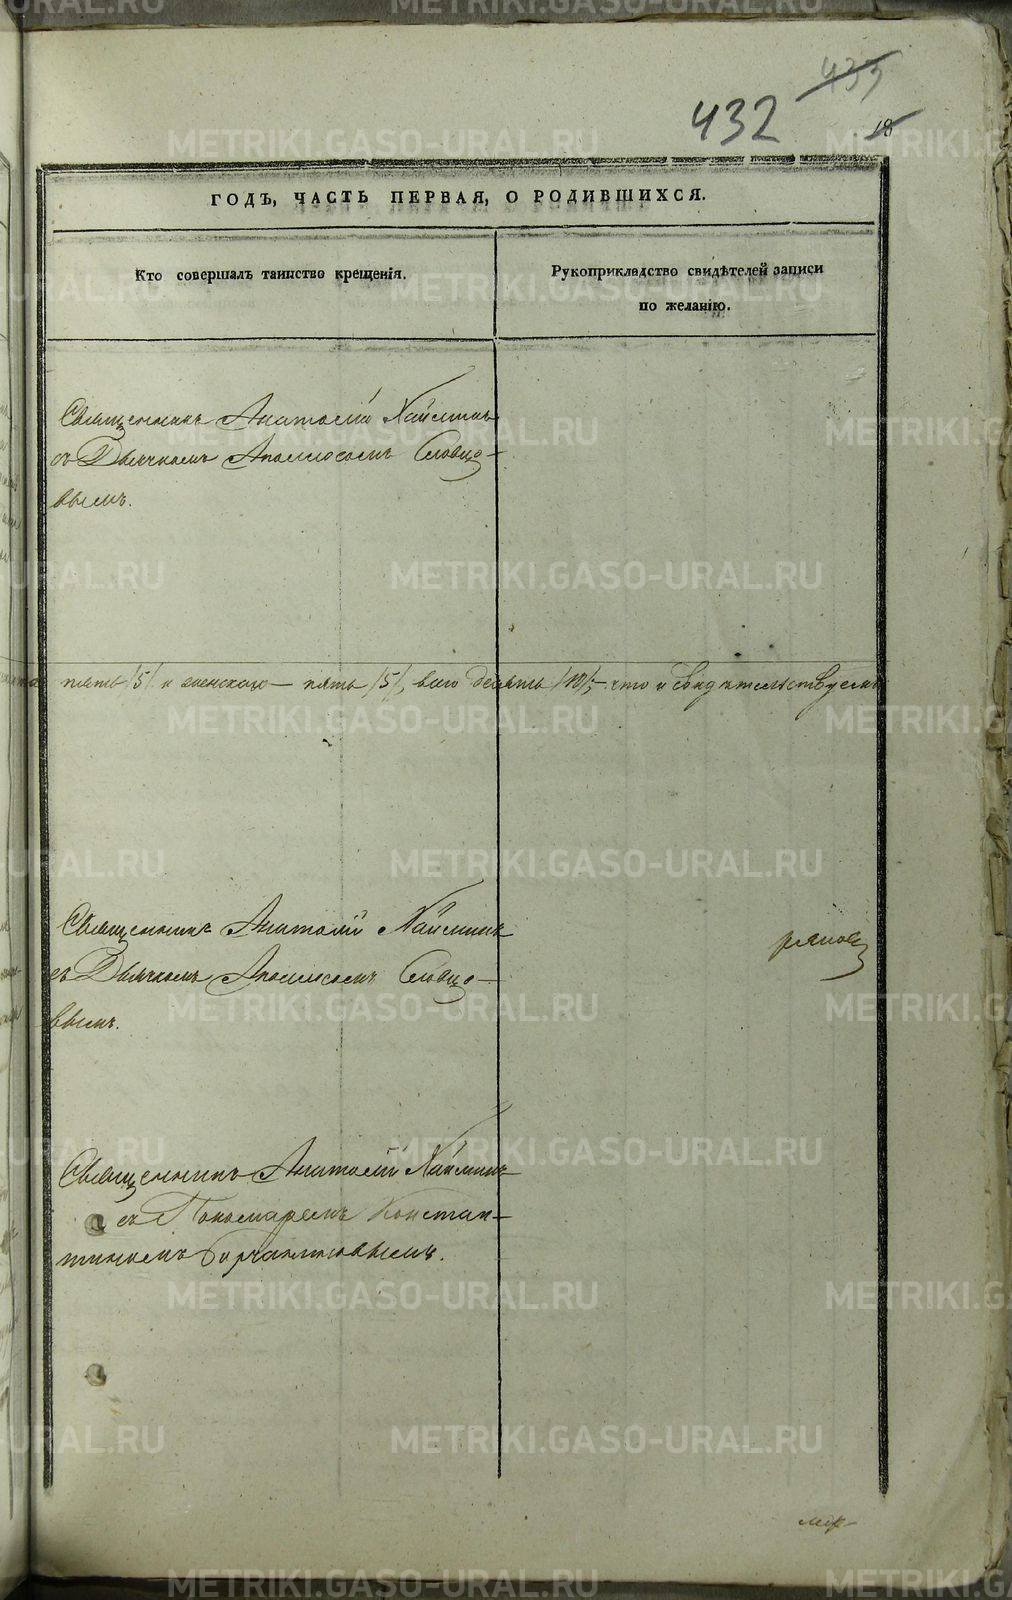 433
432
18
ГОДЪ, ЧАСТЬ ПЕРВАЯ, О РОДИВШИХСЯ.
Кто совершалъ таинство крещенія.
Рукоприкладство свидѣтелей записи
по желанію.
Священникъ Анатолій Наймшикъ
съ Дьячкомъ Аполлосомъ Словцо-
вымъ.
пять /5/ и женскаго – пять /5/, всего десять /10/; – что и свидѣтельствуемъ
Священникъ Анатолій
съ Дьячкомъ Аполлосомъ Словцо-
вымъ.
Священникъ Анатолій
съ Пономаремъ Констан-
тиномъ
METRIKI.GASO-URAL.RU